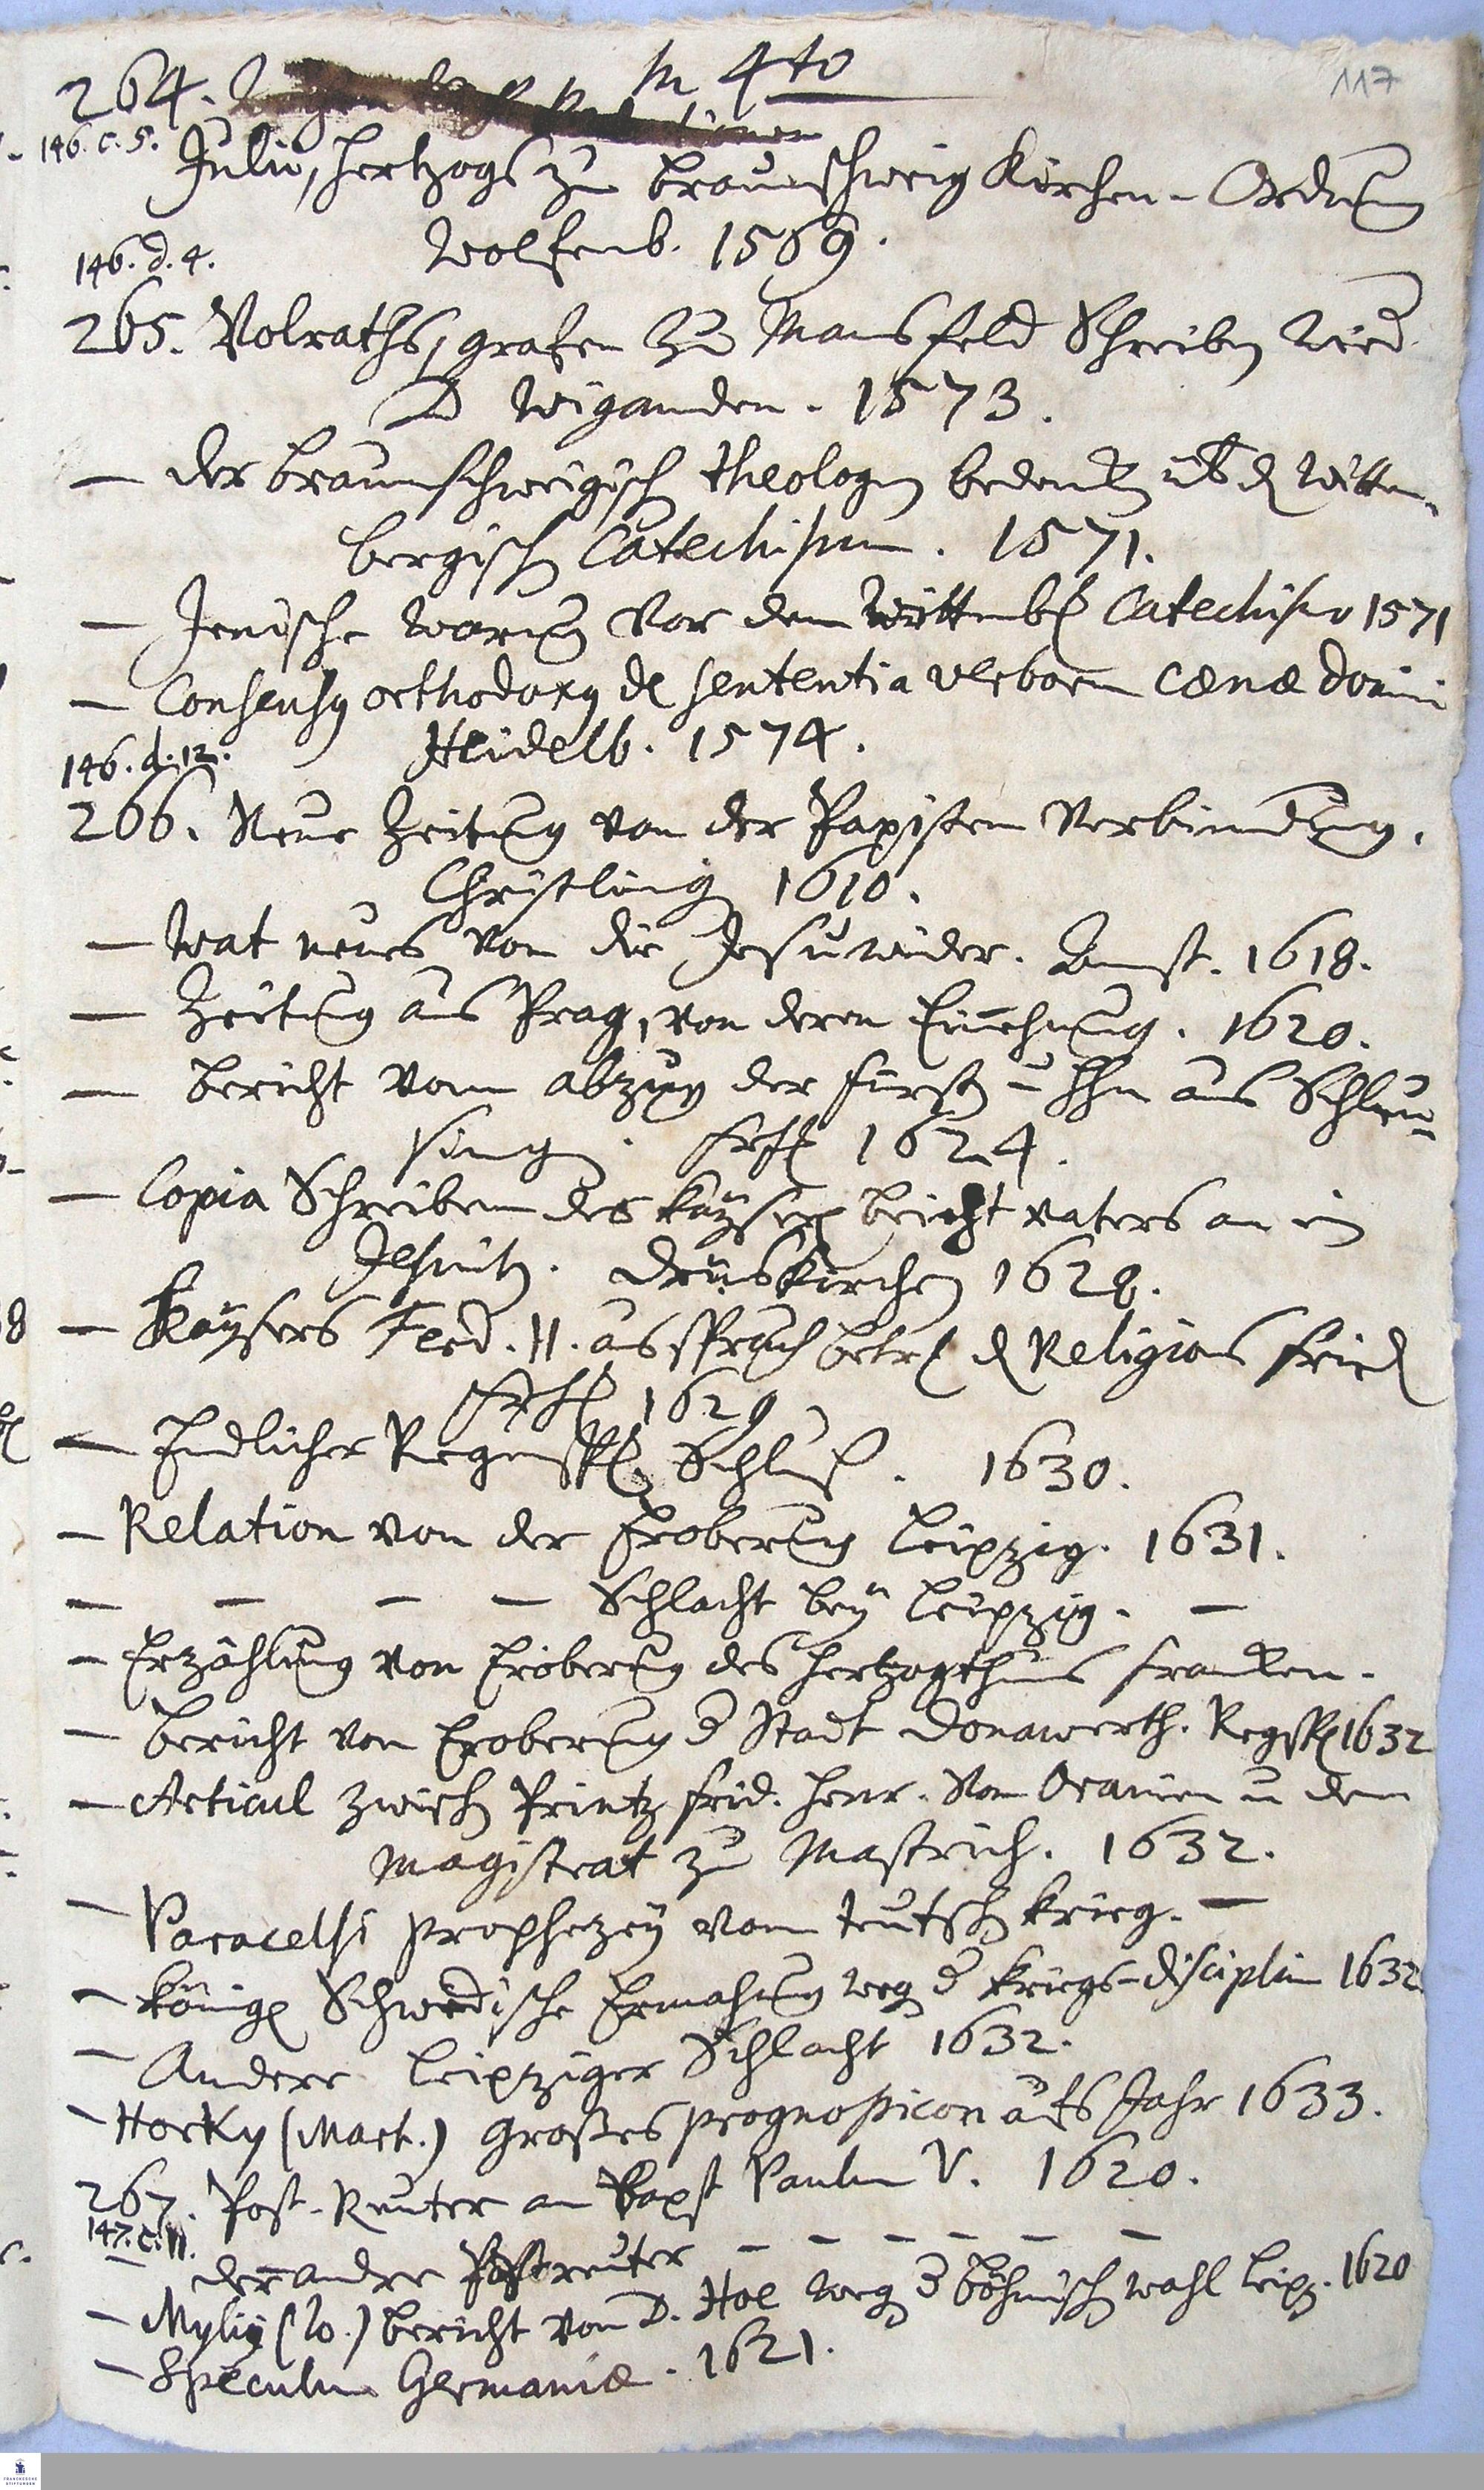 In 4to
117
264.
146. c. 5.
Julii, Hertzogs zu Braunschweig Kirchen-Ordnung
Wolfenb. 1569.
146. d. 4.
265. Volraths, Grafen zu Mansfeld Schreiben wied.
D Wiganden. 1573.
— der Braunschweigisch Theologen bedenken üb d Witten-
bergisch Catechismum. 1571.
— Jenische Warnung vor dem Wittenb Catechismo 1571
— Consensus orthodoxus de sententia verborum coenae domini
Heidelb. 1574.
146. d. 12.
266. Neue Zeitung von der Papisten Verbindung.
Christling 1610.
— Wat neues von die Jesuwider. Amst. 1618.
— Zeitung aus Prag, von deren Einnehmung. 1620.
— Bericht vom abzug der Fürst - aus Schleu-
singen. Frf 1624.
— Copia Schreiben des Kaysers beicht vaters an ein
Jesuiten. 1628.
— Kaysers Ferd. II. ausspruch betr d Religions fried
Frf 1629
— Endlicher Regensp Schluß. 1630.
— Relation von der Eroberung Leipzig. 1631.
— — — — Schlacht bey Leipzig. —
— Erzählung von Eroberung des Hertzogthums Francken.
— Bericht von Eroberung d Stadt Donawerth. Regsp 1632
— Articul zwisch Printz Frid. Henr. von Oranien u dem
Magistrat zu Mastrich. 1632.
— Paracelsi Prophezey vom teutsch krieg. —
— König Schwedische Ermahnung weg d kriegs-disciplin 1632
— Andere Leipziger Schlacht 1632.
— Horky (Mart.) Großes prognosticon aufs Jahr 1633.
267. Post-Reuter an Papst Paulum V. 1620.
147. c. 11.
— der andre Postreuter — — — — — —
— Mylii (Jo.) bericht von D. Hoe weg d böhmisch wahl Leipz. 1620
— Speculum Germaniae. 1621.
FRANCKESCHE
STIFTUNGEN